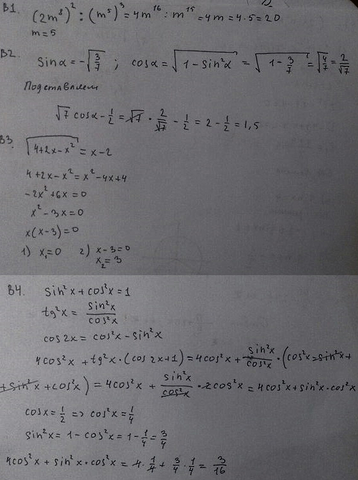 B1. (2m⁸)² : (m⁵)³ = 4m¹⁶ : m¹⁵ = 4m = 4·5 = 20
m = 5
B2. sinα = -√(3/7) ; cosα = √(1 - sin²α) = √(1 - 3/7) = √(4/7) = 2/√7
Подставляем
√7 cosα - 1/2 = √7 · 2/√7 - 1/2 = 2 - 1/2 = 1,5
B3. √(4+2x-x²) = x-2
4+2x-x² = x²-4x+4
-2x²+6x=0
x²-3x=0
x(x-3)=0
1) x₁=0 2) x-3=0
x₂=3
B4. sin²x + cos²x = 1
tg²x = sin²x/cos²x
cos2x = cos²x - sin²x
4cos²x + tg²x · (cos2x+1) = 4cos²x + sin²x/cos²x · (cos²x - sin²x +
+ sin²x + cos²x) = 4cos²x + sin²x/cos²x · 2cos²x = 4cos²x + sin²x · cos²x
cosx = 1/2 => cos²x = 1/4
sin²x = 1 - cos²x = 1 - 1/4 = 3/4
4cos²x + sin²x · cos²x = 4 · 1/4 + 3/4 · 1/4 = 3/16